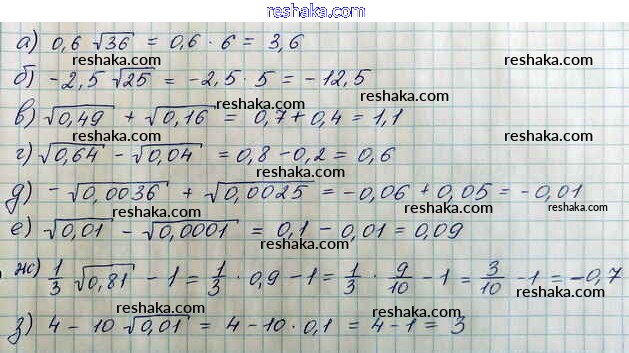 reshaka.com
а) 0,6 √36 = 0,6 · 6 = 3,6
reshaka.com
б) -2,5 √25 = -2,5 · 5 = -12,5
reshaka.com reshaka.com
в) √0,49 + √0,16 = 0,7 + 0,4 = 1,1
reshaka.com reshaka.com
г) √0,64 - √0,04 = 0,8 - 0,2 = 0,6
reshaka.com
д) -√0,0036 + √0,0025 = -0,06 + 0,05 = -0,01
reshaka.com reshaka.com
е) √0,01 - √0,0001 = 0,1 - 0,01 = 0,09
reshaka.com
reshaka.com
ж) 1/3 √0,81 - 1 = 1/3 · 0,9 - 1 = 1/3 · 9/10 - 1 = 3/10 - 1 = -0,7
reshaka.com reshaka.com
з) 4 - 10 √0,01 = 4 - 10 · 0,1 = 4 - 1 = 3
reshaka.com reshaka.com